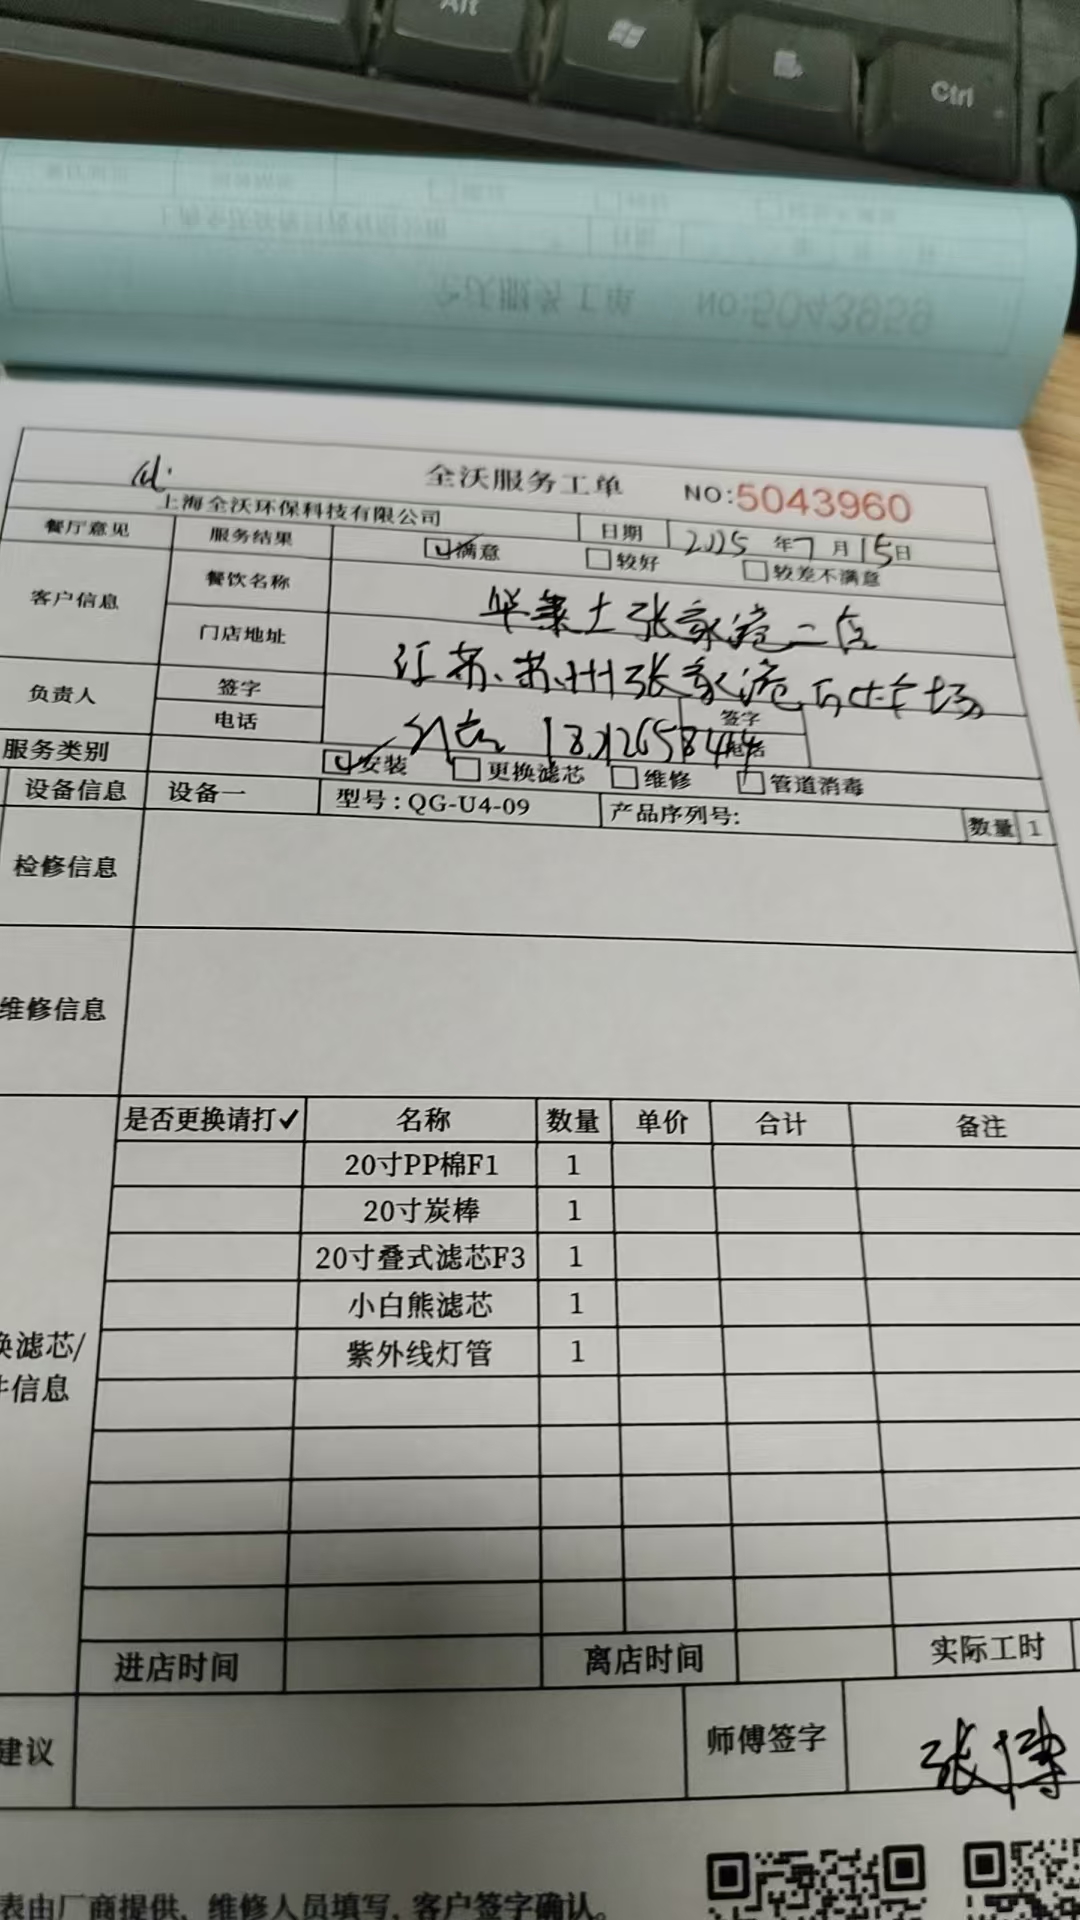 Alt
Ctrl
全沃服务工单 NO:5043959
全沃服务工单 NO:5043960
上海全沃环保科技有限公司 日期 2025 年 7 月 15 日
餐厅意见 服务结果 满意 较好 较差不满意
客户信息 餐饮名称 华莱士张家港二店
门店地址 江苏.苏州张家港
负责人 签字 签字
电话
服务类别 安装 更换滤芯 维修 管道消毒
设备信息 设备一 型号:QG-U4-09 产品序列号: 数量 1
检修信息
维修信息
是否更换请打✓ 名称 数量 单价 合计 备注
20寸PP棉F1 1
20寸炭棒 1
20寸叠式滤芯F3 1
小白熊滤芯 1
换滤芯/
件信息
紫外线灯管 1
进店时间 离店时间 实际工时
建议 师傅签字 张博
表由厂商提供, 维修人员填写, 客户签字确认。